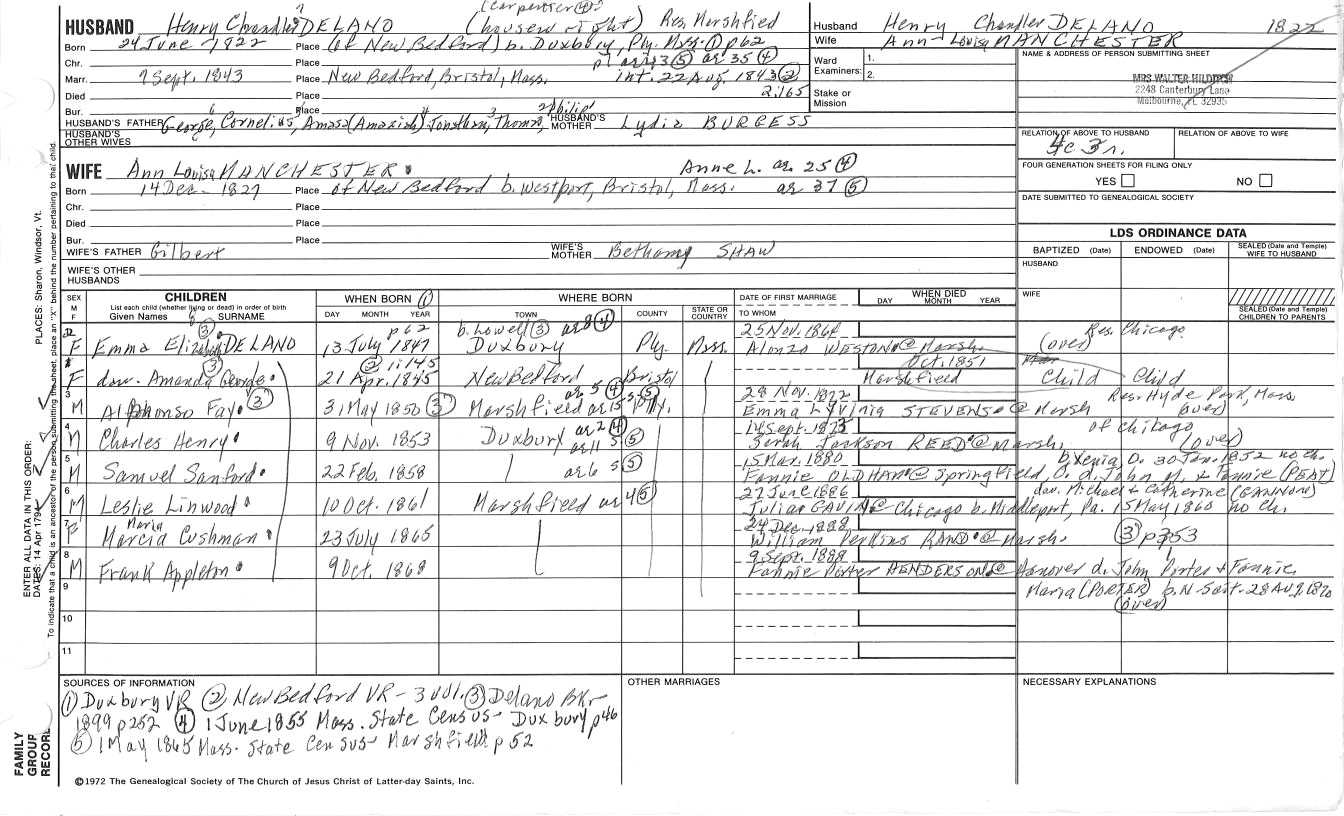 HUSBAND Henry Chandler DELANO 7 (carpenter ④) (housewright) Res. Marshfied
Born 24 June 1822 Place (of New Bedford) b. Duxbury, Ply. Mss. ① p62
Chr. Place ar 43 ⑤ ar 35 ④
Marr. 7 Sept. 1843 Place New Bedford, Bristol, Mass. int. 22 Aug. 1843 ②
Died Place 2:165
Bur. Place
HUSBAND'S FATHER George, 6 Cornelius, 5 Amasa (Amaziah) 4 Jonathan, 3 Thomas, 2 Philip HUSBAND'S MOTHER Lydia BURGESS
HUSBAND'S OTHER WIVES
Husband Henry Chandler DELANO 1822
Wife Ann Louisa MANCHESTER
Ward 1.
Examiners: 2.
Stake or Mission
NAME & ADDRESS OF PERSON SUBMITTING SHEET
MRS WALTER
2248 Canterbury Lane
Melbourne, FL 32935
RELATION OF ABOVE TO HUSBAND RELATION OF ABOVE TO WIFE
4c 3r.
FOUR GENERATION SHEETS FOR FILING ONLY
YES NO
DATE SUBMITTED TO GENEALOGICAL SOCIETY
WIFE Ann Louisa MANCHESTER Anne L. ar. 25 ④
Born 14 Dec. 1827 Place of New Bedford b. Westport, Bristol, Mass. ar 37 ⑤
Chr. Place
Died Place
Bur. Place
WIFE'S FATHER Gilbert WIFE'S MOTHER Bethany SHAW
WIFE'S OTHER HUSBANDS
LDS ORDINANCE DATA
BAPTIZED (Date) ENDOWED (Date) SEALED (Date and Temple) WIFE TO HUSBAND
HUSBAND
WIFE
SEALED (Date and Temple) CHILDREN TO PARENTS
SEX M F CHILDREN List each child (whether living or dead) in order of birth Given Names SURNAME WHEN BORN ① DAY MONTH YEAR WHERE BORN TOWN COUNTY STATE OR COUNTRY DATE OF FIRST MARRIAGE TO WHOM WHEN DIED DAY MONTH YEAR
2 F Emma Elizabeth ③ DELANO 13 July 1847 p62 b. Lowell ③ ar 8 ④ Duxbury Ply. Mss. 25 Nov. 1864 Alonzo WESTON @ Marsh. Res. Chicago. (over)
F dau. Amanda George ③ 21 Apr. 1845 ② 1:145 New Bedford Bristol Oct. 1851 Marshfield Child Child
3 M Alphonso Fay ③ 31 May 1850 ③ Marshfield ar 5 ④ ar 15 ⑤ Ply. 28 Nov. 1872 Emma STEVENS @ Marsh Res. Hyde Park, Mass. (over)
4 M Charles Henry 9 Nov. 1853 Duxbury ar 2 ④ ar 11 ⑤ Sept. 1875 Sarah Jackson REED @ Marsh. of Chicago (over)
5 M Samuel Sanford 22 Feb. 1858 ar 6 ⑤ 15 Mar. 1880 Fannie OLDHAM @ Springfield, O. d. John M. & Fannie (PEAT) b Xenia, O. 30 Jan. 1852 no ch.
6 M Leslie Linwood 10 Oct. 1861 Marshfield ar 4 ⑤ 27 June 1886 GAVIN @ Chicago b. Middleport, Pa. 15 May 1860 no ch. dau. Michael & Catherine (GANNON)
7 F Marcia Maria Cushman 23 July 1865 24 Dec. 1888 William Perkins RAND @ Marsh. ③ p253
8 M Frank Appleton 9 Oct. 1868 9 Sept. 1889 Fannie Porter HENDERSON @ Hanover d. John Porter & Fannie Maria (PORTER) b. N-Scit. 28 Aug 1870 (over)
9
10
11
SOURCES OF INFORMATION
① Duxbury VR ② New Bedford VR - 3 vol. ③ Delano BK-
1899 p252 ④ 1 June 1855 Mass. State Census- Duxbury p46
⑤ 1 May 1865 Mass. State Census- Marshfield p52
OTHER MARRIAGES
NECESSARY EXPLANATIONS
©1972 The Genealogical Society of The Church of Jesus Christ of Latter-day Saints, Inc.
FAMILY GROUP RECORD
ENTER ALL DATA IN THIS ORDER:
DATES: 14 Apr 179
PLACES: Sharon, Windsor, Vt.
To indicate that a child is an ancestor of the person submitting the sheet, place an "X" behind the number pertaining to that child.